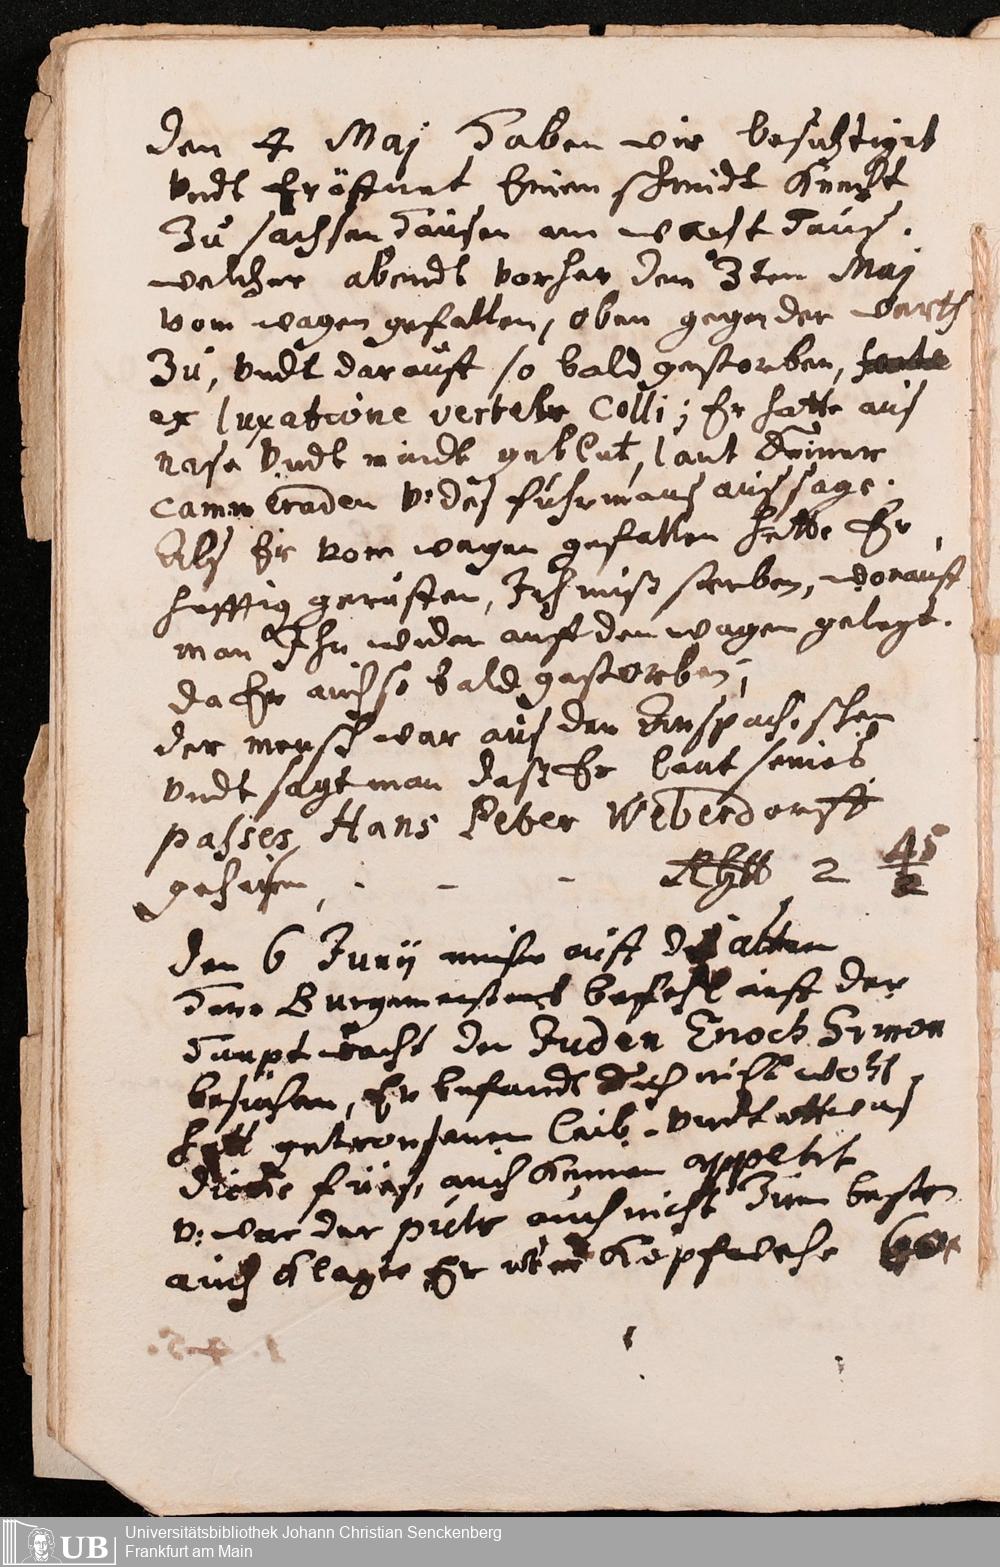 den 4 Maj haben wir besichtiget
Vndt Eröffnet Einen schmidt Knecht
Zu sachsenhausen am wacht hauß.
welcher abendt vorher den 3ten Maj
vom wagen gefallen, oben gegen der warth
Zu, Vndt darauff so bald gestorben,
ex luxatione vertebr Colli; Er hatte auß
nase Vndt mundt geblut, laut seiner
cammeraden v: deß fuhrmanß außsage.
Alß Er vom wagen gefallen hette Er
hefftig geruffen, Ich muß sterben, worauff
man Ihn wider auff den wagen gelegt.
da Er auch so bald gestorben;
der mensch war auß den Anspachischen
Vndt sagt man daß Er laut seines
passes Hans Peter Weberdorff
geheisen, - - - 2 45
2
den 6 Junij muste auff deß alten
Herr Burgemeisters befehl auff der
Hauptwacht den Juden Enoch Simon
besuchen, Er befandt sich nicht wohl,
hatt getronsenen leib, Vndt ettwas
dicke füeß, auch keinen appetit
v: war der puls auch nicht zum besten
auch klagte Er über Kopfwehe
Universitätsbibliothek Johann Christian Senckenberg
Frankfurt am Main
UB